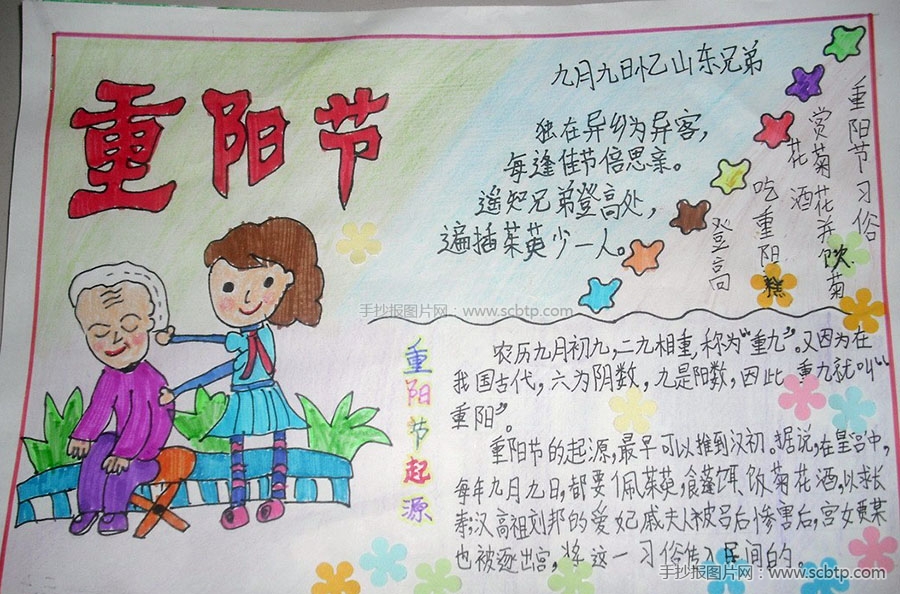 重阳节
九月九日忆山东兄弟
独在异乡为异客，
每逢佳节倍思亲。
遥知兄弟登高处，
遍插茱萸少一人。
重阳节习俗
赏菊花并饮菊
花酒
吃重阳糕
登高
手抄报图片网：www.scbtp.com
重阳节起源
农历九月初九，二九相重，称为“重九”。又因为在
我国古代，六为阴数，九是阳数，因此，重九就叫“
重阳”。
重阳节的起源，最早可以推到汉初。据说，在皇宫中，
每年九月九日，都要佩茱萸，食蓬饵，饮菊花酒，以求长
寿；汉高祖刘邦的爱妃戚夫人被吕后惨害后，宫女贾某
也被逐出宫，将这一习俗传入民间的。
手抄报图片网：www.scbtp.com